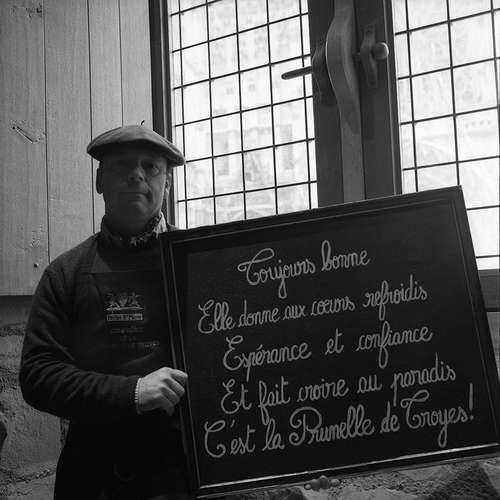 Toujours bonne
Elle donne aux coeurs refroidis
Espérance et confiance
Et fait croire au paradis
C'est la Prunelle de Troyes!